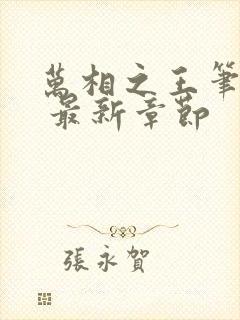 萬相之王筆
最新章節
張永賀